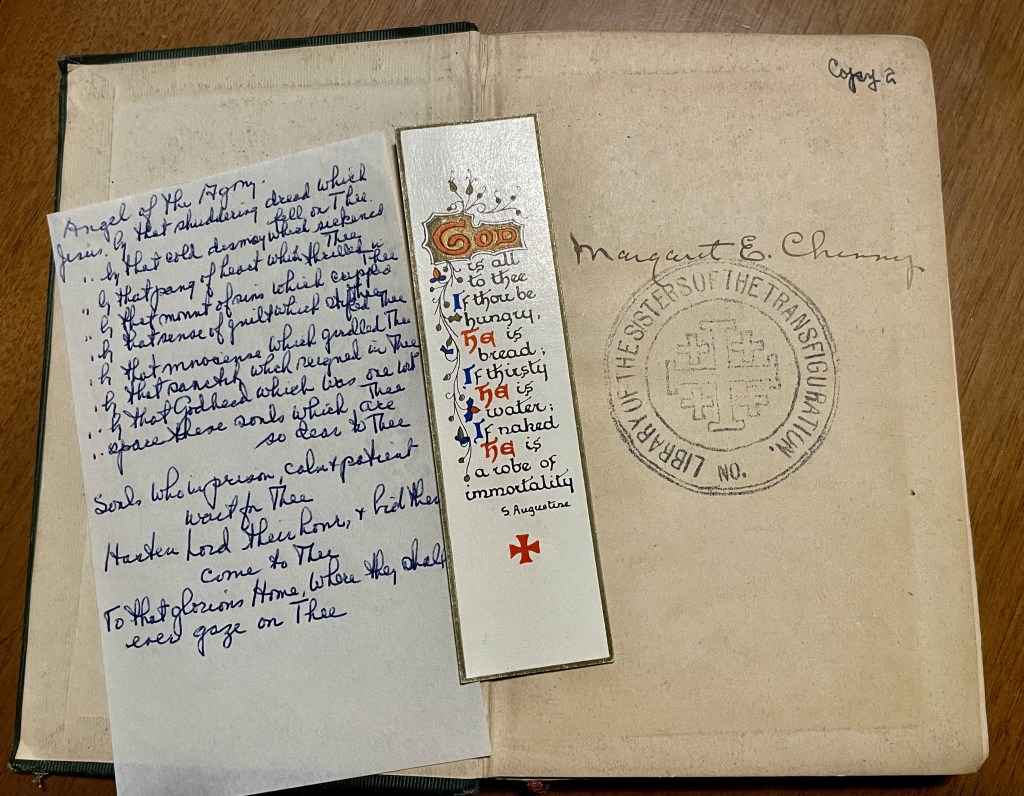 Angel of the Agony.
Jesus. by that shuddering dread which
fell on Thee.
" by that cold dismay which sickened
Thee
" by that pang of heart which thrilled in
Thee
" by that mount of sins which crippled
Thee
" by that sense of guilt which stifled Thee
" by that innocence which girdled Thee
" by that sanctity which reigned in Thee
" by that Godhead which was one with
Thee
" spare these souls which are
so dear to Thee
Souls who in prison, calm & patient
wait for Thee
Hasten Lord their hour, & bid them
come to Thee
To that glorious Home, where they shall
ever gaze on Thee
GOD
is all
to thee
If thou be
hungry,
he is
bread;
If thirsty
he is
water;
If naked
he is
a robe of
immortality
S. Augustine
Copy 2
Margaret E.
LIBRARY OF THE SISTERS OF THE TRANSFIGURATION.
NO.